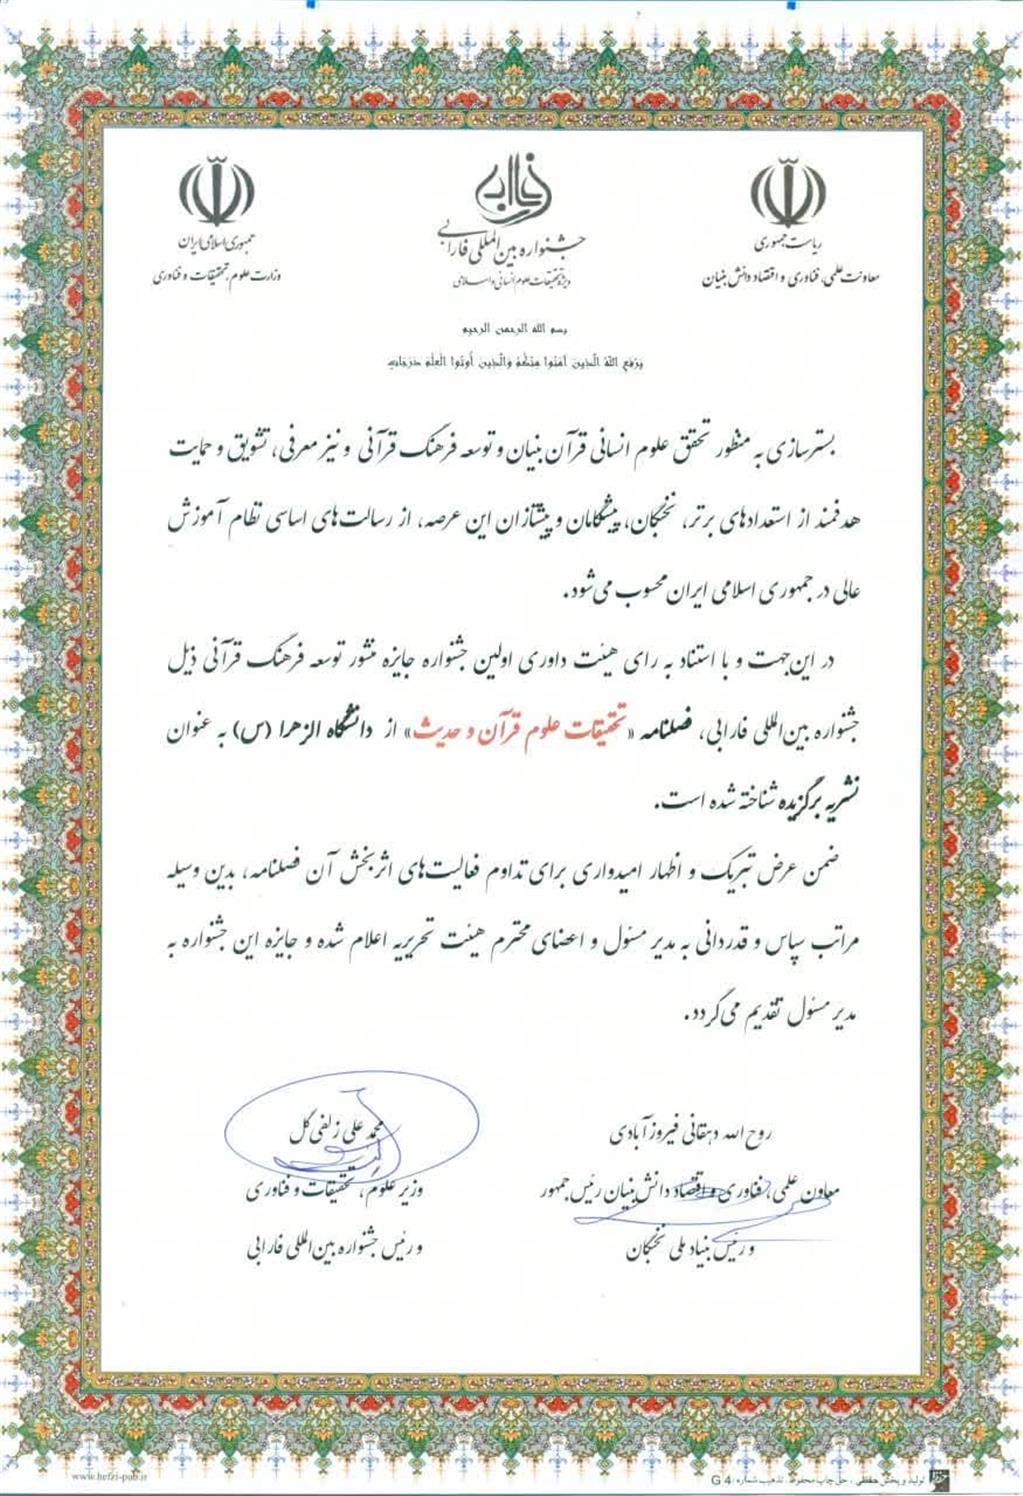 ریاست جمهوری
معاونت علمی، فناوری و اقتصاد دانش بنیان
فارابی
جشنواره بین‌المللی فارابی
ویژه تحقیقات علوم انسانی و اسلامی
جمهوری اسلامی ایران
وزارت علوم، تحقیقات و فناوری
بسم الله الرحمن الرحیم
يَرفَعِ اللهُ الَّذينَ آمَنُوا مِنكُم وَالَّذينَ أُوتُوا الْعِلْمَ دَرَجَاتٍ
بسترسازی به منظور تحقق علوم انسانی قرآن بنیان و توسعه فرهنگ قرآنی و نیز معرفی، تشویق و حمایت
هدفمند از استعدادهای برتر، نخبگان، پیشگامان و پیشتازان این عرصه، از رسالت‌های اساسی نظام آموزش
عالی در جمهوری اسلامی ایران محسوب می‌شود.
در این‌جهت و با استناد به رای هیئت داوری اولین جشنواره جایزه منشور توسعه فرهنگ قرآنی ذیل
جشنواره بین‌المللی فارابی، فصلنامه «تحقیقات علوم قرآن و حدیث» از دانشگاه الزهرا (س) به عنوان
نشریه برگزیده شناخته شده است.
ضمن عرض تبریک و اظهار امیدواری برای تداوم فعالیت‌های اثربخش آن فصلنامه، بدین وسیله
مراتب سپاس و قدردانی به مدیر مسئول و اعضای محترم هیئت تحریریه اعلام شده و جایزه این جشنواره به
مدیر مسئول تقدیم می‌گردد.
روح الله دهقانی فیروزآبادی
معاون علمی، فناوری و اقتصاد دانش بنیان رئیس جمهور
و رئیس بنیاد ملی نخبگان
محمد علی زلفی گل
وزیر علوم، تحقیقات و فناوری
و رئیس جشنواره بین‌المللی فارابی
www.hefzi-pub.ir
تولید و پخش حفظی ، حق چاپ محفوظ . تذهیب شماره: G 4